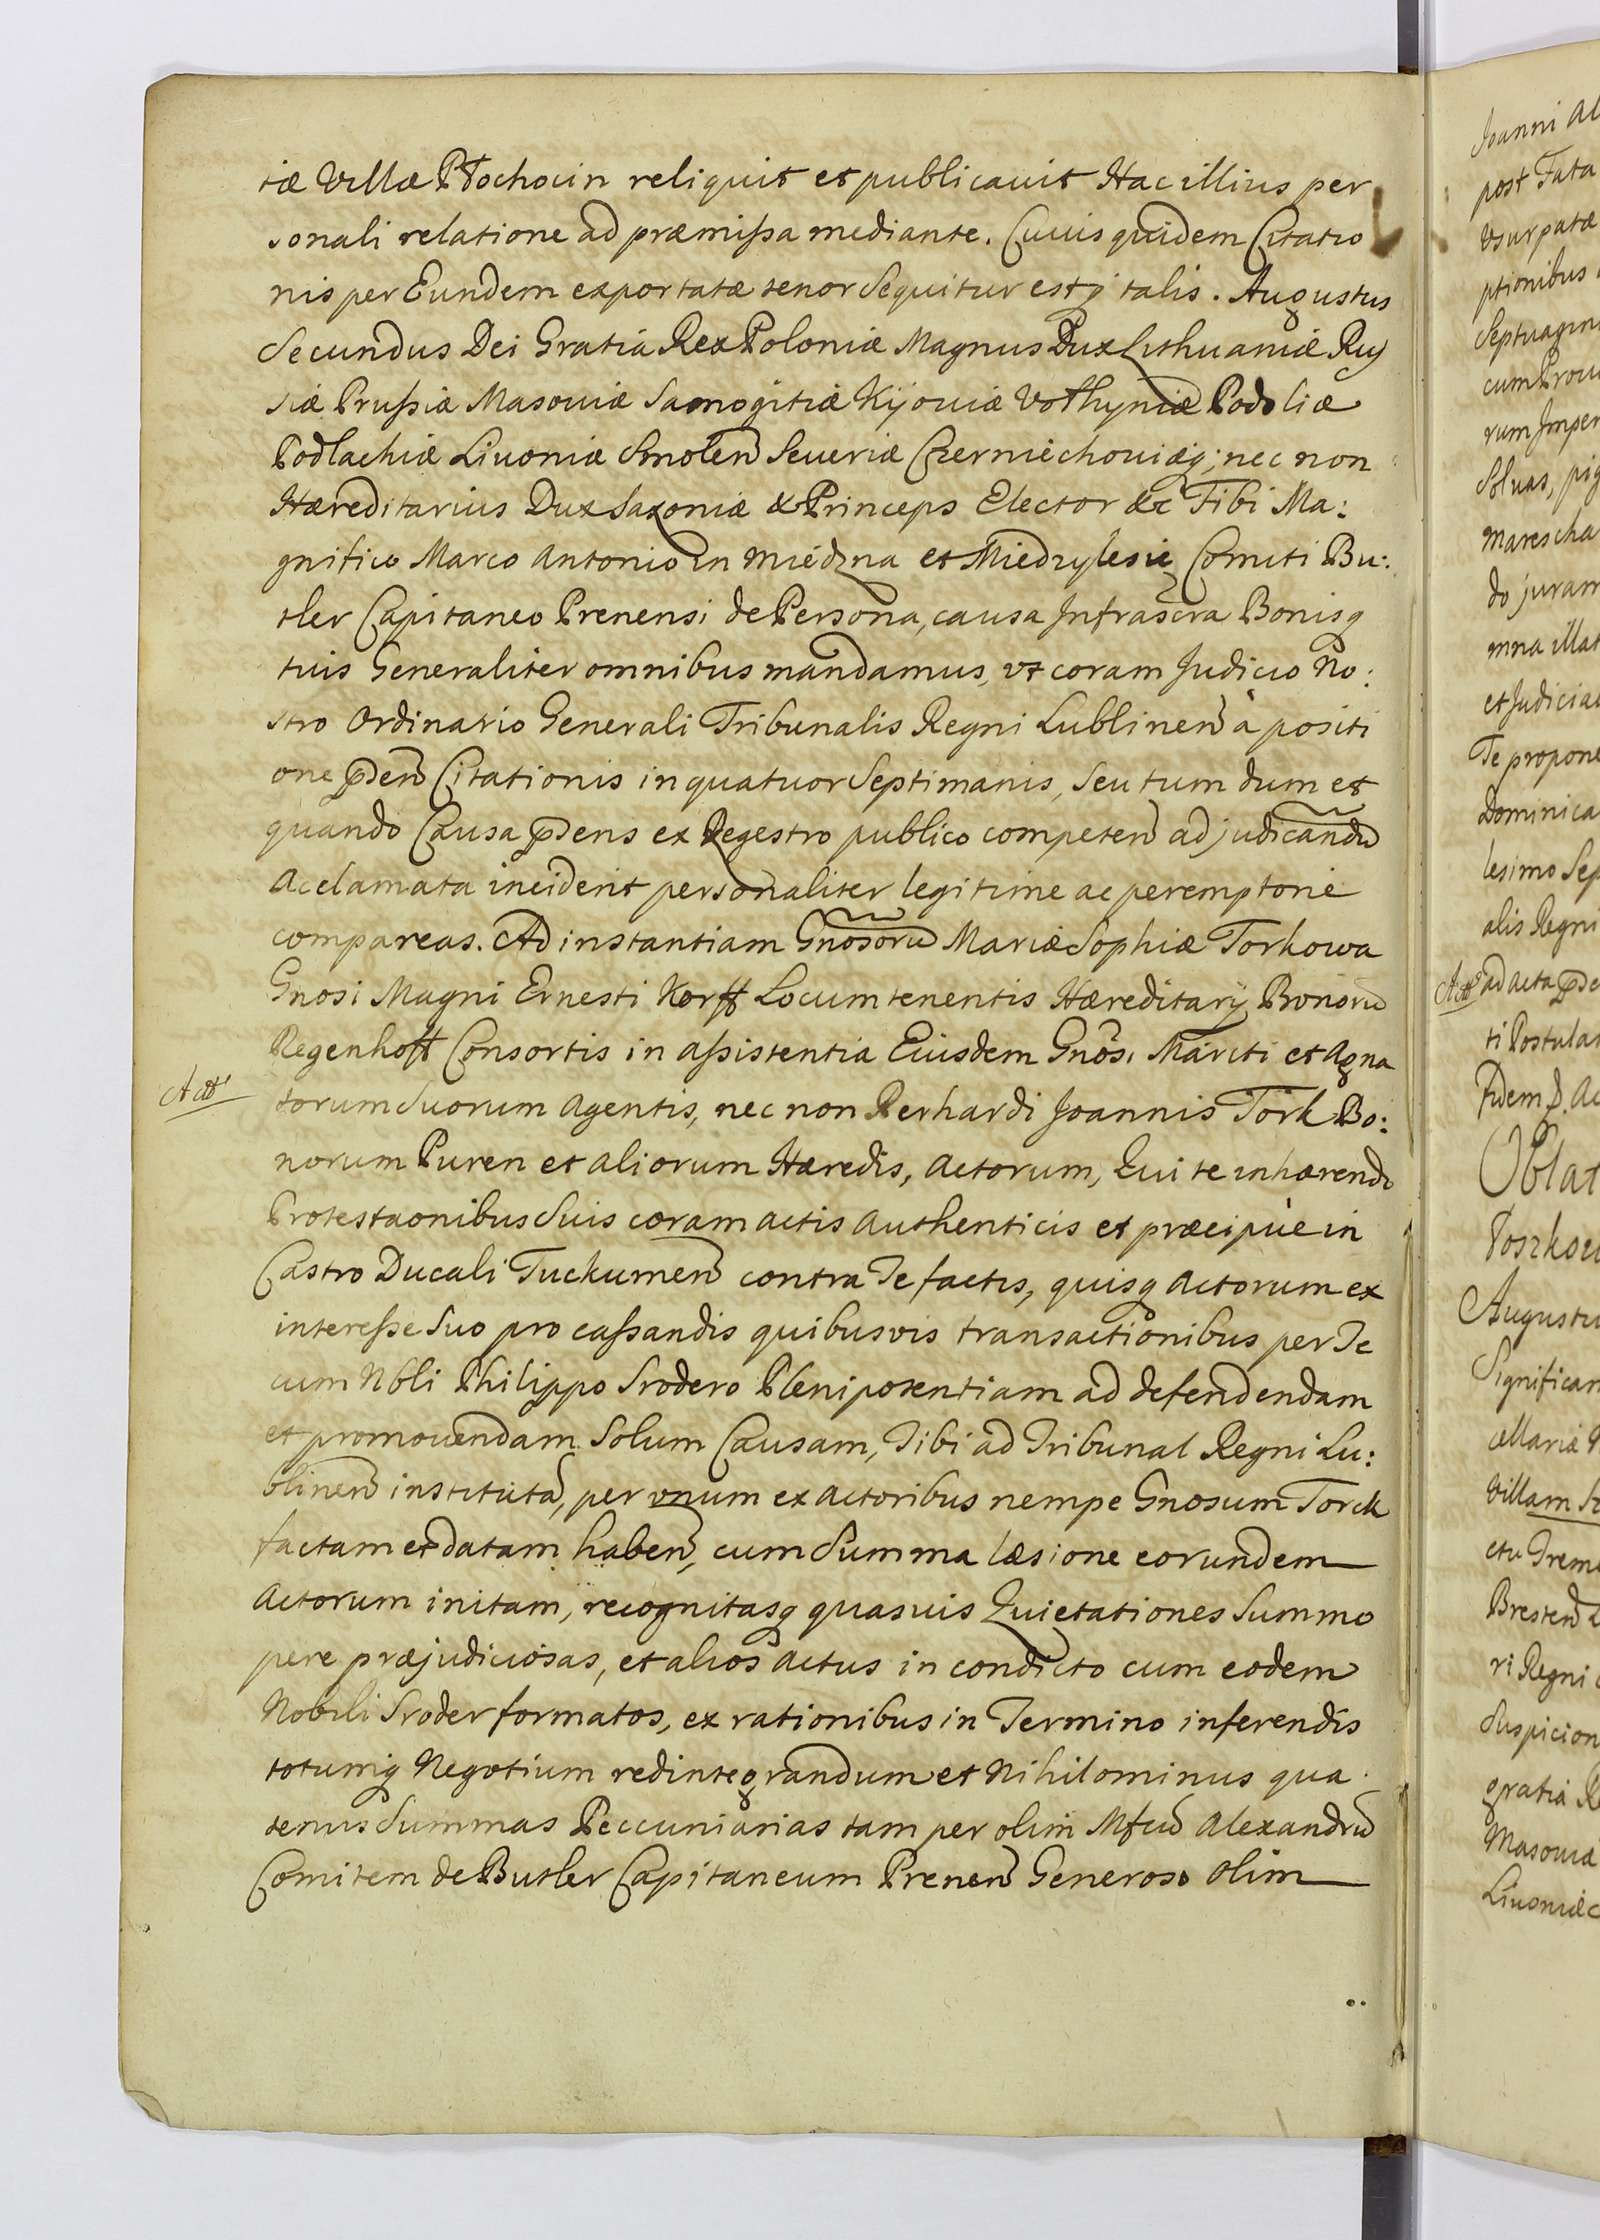 tiæ Villæ Płochocin reliquit et publicauit Hac illius per
sonali relatione ad præmißa mediante. Cuius quidem Citatio
nis per Eundem exportatæ tenor Sequitur estq talis. Augustus
Secundus Dei Gratiá Rex Poloniæ Magnus Dux Lithuaniæ Rus
siæ Prußiæ Masouiæ Samogitiæ Kijouiæ Vołhyniæ Podoliæ
Podlachiæ Liuoniæ Smoleñ Seueriæ Czerniechouiæq; nec non
Hæreditarius Dux Saxoniæ & Princeps Elector &c Tibi Ma:
gnifico Marco Antonio in Miedzna et Miedzylesie Comiti Bu:
tler Capitaneo Prenensi de Persona, causa Infrascra Bonisq
tuis Generaliter omnibus mandamus, vt coram Judicio No:
stro Ordinario Generali Tribunalis Regni Lublineñ à positi
one pdeñ Citationis in quatuor Septimanis, Seu tum dum et
quando Causa pdens ex Regestro publico competeñ ad judicandũ
Acclamata inciderit personaliter legitime ac peremptorie
compareas. Ad instantiam Gnosorũ Mariæ Sophiæ Torkowa
Gnosi Magni Ernesti Korff Locumtenentis Hæreditarÿ Bonorũ
Regenhoff Consortis in aßistentia Eiusdem Gnosi Mariti et Agna
Act
torum Suorum Agentis, nec non Rerhardi Joannis Tork Bo:
norum Puren et aliorum Hæredis, Actorum, Qui te inhærendo
Protestaonibus Suis coram actis Authenticis et præcipùe in
Castro Ducali Tuckumeñ contra Te factis, quisq Actorum ex
intereße Suo pro caßandis quibusvis transactionibus per Te
cum Nbli Philippo Srodero Plenipotentiam ad defendendam
et promouendam Solum Causam, Tibi ad Tribunal Regni Lu:
blineñ institutã, per vnum ex Actoribus nempe Gnosum Torck
factam et datam habeñ, cum Summa læsione eorundem
Actorum initam, recognitasq quasuis Quietationes Summo
pere præjudiciosas, et alios Actus in condicto cum eodem
Nobili Sroder formatos, ex rationibus in Termino inferendis
totumq Negotium redintegrandum et Nihilominus qua
tenus Summas Peccuniarias tam per olim Mfcũ Alexandrũ
Comitem de Butler Capitaneum Preneñ Generoso olim
Joanni Al
post Fata
Vsurpatæ
ptionibus
Septuagin
cum Prou
rum Imper
Soluas, pig
marescha
do juram
mna illat
et Judicia
Te propone
Dominica
lesimo Sep
alis Regni
ad acta pde
ti Postula
Oblat
Augustu
Significam
cellariæ
Villam
Bresteñ
ri Regni
Suspicion
gratia R
Masouiæ
Liuoniæ